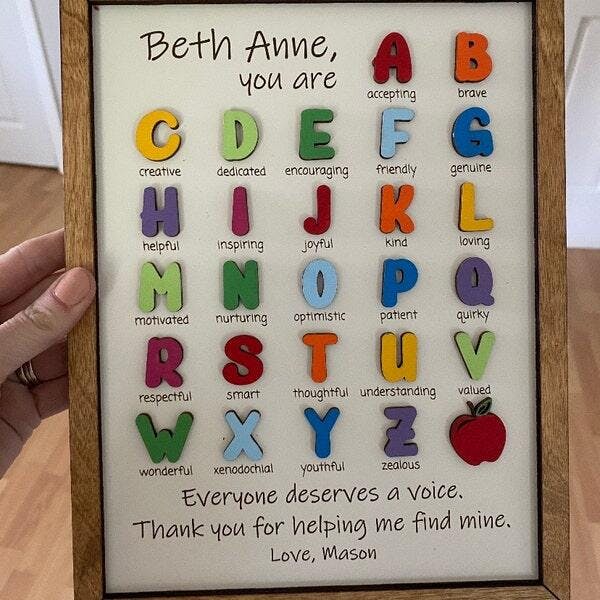 Beth Anne,
you are
A B
accepting brave
C D E F G
creative dedicated encouraging friendly genuine
H I J K L
helpful inspiring joyful kind loving
M N O P Q
motivated nurturing optimistic patient quirky
R S T U V
respectful smart thoughtful understanding valued
W X Y Z
wonderful xenodochial youthful zealous
Everyone deserves a voice.
Thank you for helping me find mine.
Love, Mason